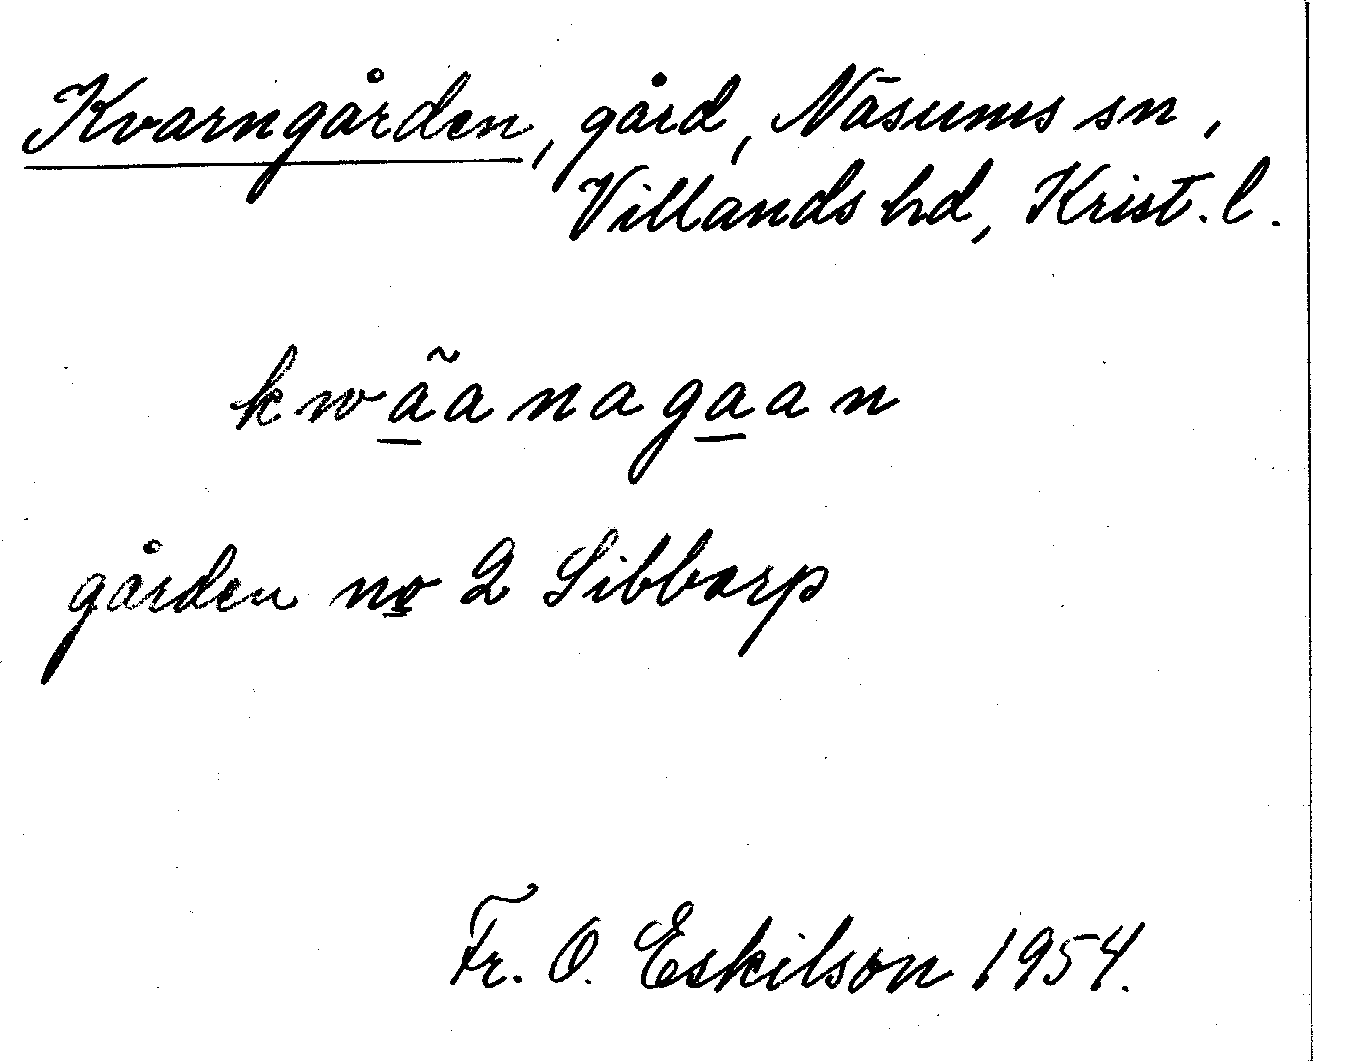 Kvarngården, gård, Näsums sn,
Villands hd, Krist. l.
kwãanagaan
gården no 2 Sibbarp
Fr. O. Eskilson 1954.